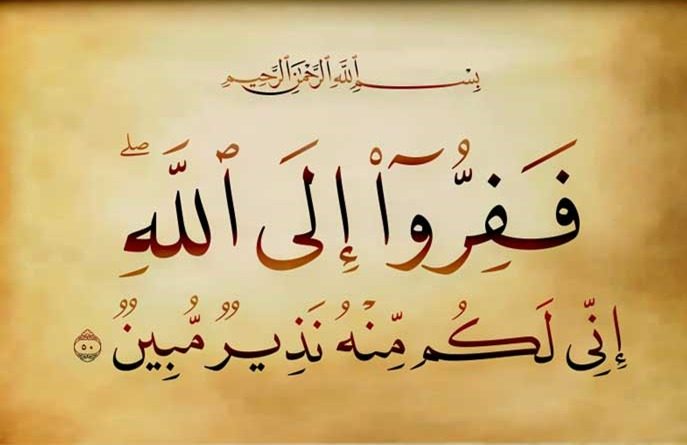 بِسْمِ ٱللَّهِ ٱلرَّحْمَٰنِ ٱلرَّحِيمِ
فَفِرُّوٓا۟ إِلَى ٱللَّهِ ۖ
إِنِّى لَكُم مِّنْهُ نَذِيرٌ مُّبِينٌ ٥٠